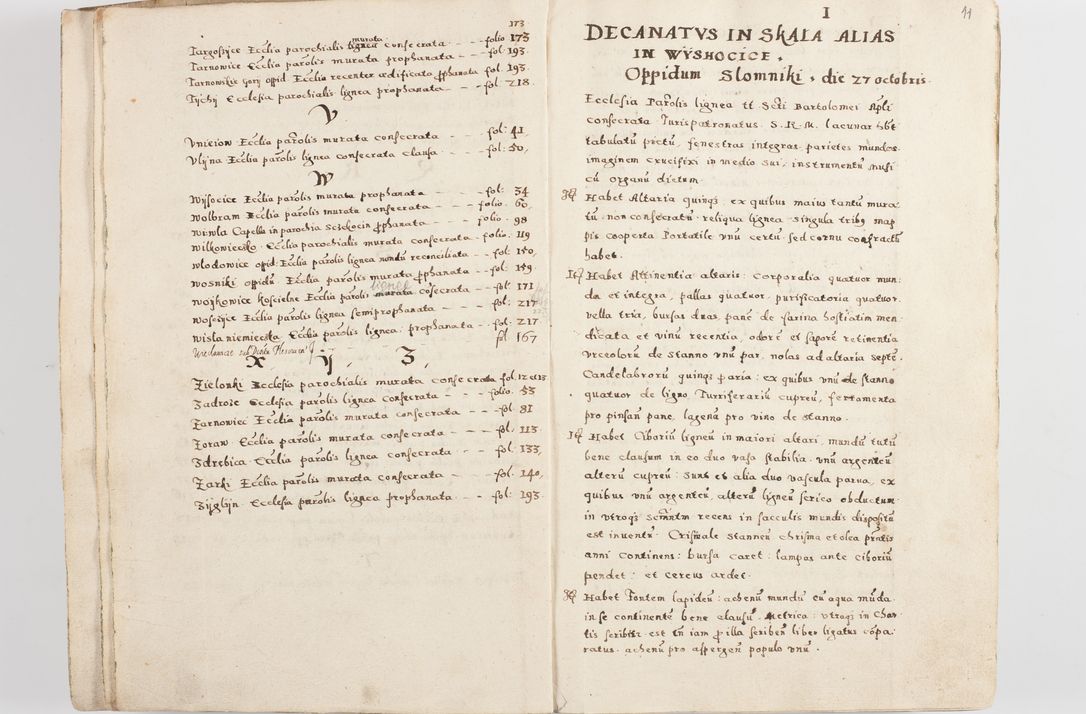 173
Targoszyce Ecclia parochialis lignea murata consecrata - - folio 173
Tarnowice Ecclia parolis murata prophanata - - - fol. 193.
Tarnowskie Gory oppid. Ecclia recenter ædificata prophanata fol. 193.
Tychy Ecclesia parochialis lignea prophanata - - - fol: 218.
V
Vnieiow Ecclia parolis murata consecrata - - - fol: 41.
Vlyna Ecclia parolis lignea consecrata clausa - - - fol: 50,
W
Wysocice Ecclia parolis murata prophanata - - - fol: 34
Wolbram Ecclia parolis murata consecrata - - - folio. 60,
Wiwla Capella in parochia Szczekocin prophanata - - folio. 98
Wilkowiecsko Ecclia parochialis murata consecrata - folio. 119
Wlodowice oppid: Ecclia parolis lignea nondu reconciliata - - fol: 150,
Wosniki oppidu Ecclia parolis murata prophanata - - fol: 159.
Woykowice koscielne Ecclia paroli murata lignea cosecrata - - fol. 171
Woszyce Ecclia parolis lignea semiprophanata - - - fol: 217
Wisla niemiecska Ecclia parolis lignea prophanata - - fol: 217.
fol 167
X y Z
Zielonki Ecclesia parochialis murata consecrata fol. 12 et 13
Zadroże Ecclesia parolis lignea Consecrata - - - folio. 53
Zarnowiec Ecclia parolis murata consecrata - - - fol. 81
Zoraw Ecclia parolis murata consecrata - - - fol. 113
Zdrebica Ecclia parolis lignea consecrata - - - fol: 133,
Zarki Ecclia parolis murata consecrata - - - fol: 140,
Zyglyn Ecclesia parolis lignea prophanata - - - fol: 193.
I
11
DECANATVS IN SKALA ALIAS
IN WYSHOCICE.
Oppidum Slomniki. die 27 octobris
Ecclesia Parolis lignea tt Scti Bartolomei Apli
consecrata Jurispatronatus S. R. M. lacunar hbt
tabulatu pictu, fenestras integras parietes mundos
imaginem crucifixi in medio sui, instrumentu musi
cu organu dictum
Habet Altaria quinqz ex quibus maius tantu mura
tu non consecratu reliqua lignea singula tribz map
pis cooperta Portatile vnu certu sed cornu confractu
habet.
Habet Attinentia altaris: Corporalia quatuor mun
da et integra, pallas quatuor, purificatoria quatuor
vella tria, bursas duas, pane de farina hostiatim men
dicata et vinu recentia, odore et sapore retinentia
vrceoloru de stanno vnu par, nolas ad altaria septe
Candelabroru quinqz paria: ex quibus vnu de stanno
quatuor de ligno Turriferariu cupreu, ferramenta
pro pinsan pane, lagenu pro vino de stanno.
Habet Ciboriu ligneu in maiori altari, mundu tutu
bene clausum in eo duo vasa stabilia vnu argenteu
alteru cupreu: Sunt et alia duo vascula parua, ex
quibus vnu argenteu, alteru ligneu serico obductum
in vtroqz Scmntm recens in sacculis mundis dispositu
est inventu Crismale stanneu chrisma et olea pntis
anni continens: bursa caret: lampas ante ciboriu
pendet: et cereus ardet
Habet Fontem lapideu: achenu mundu cu aqua muda
in se continente bene clausu Metrica: vtroqz in Char
tis scribitr est tn iam p illa scriben liber ligatus copa
ratus achenu pro aspergen populo vnu.